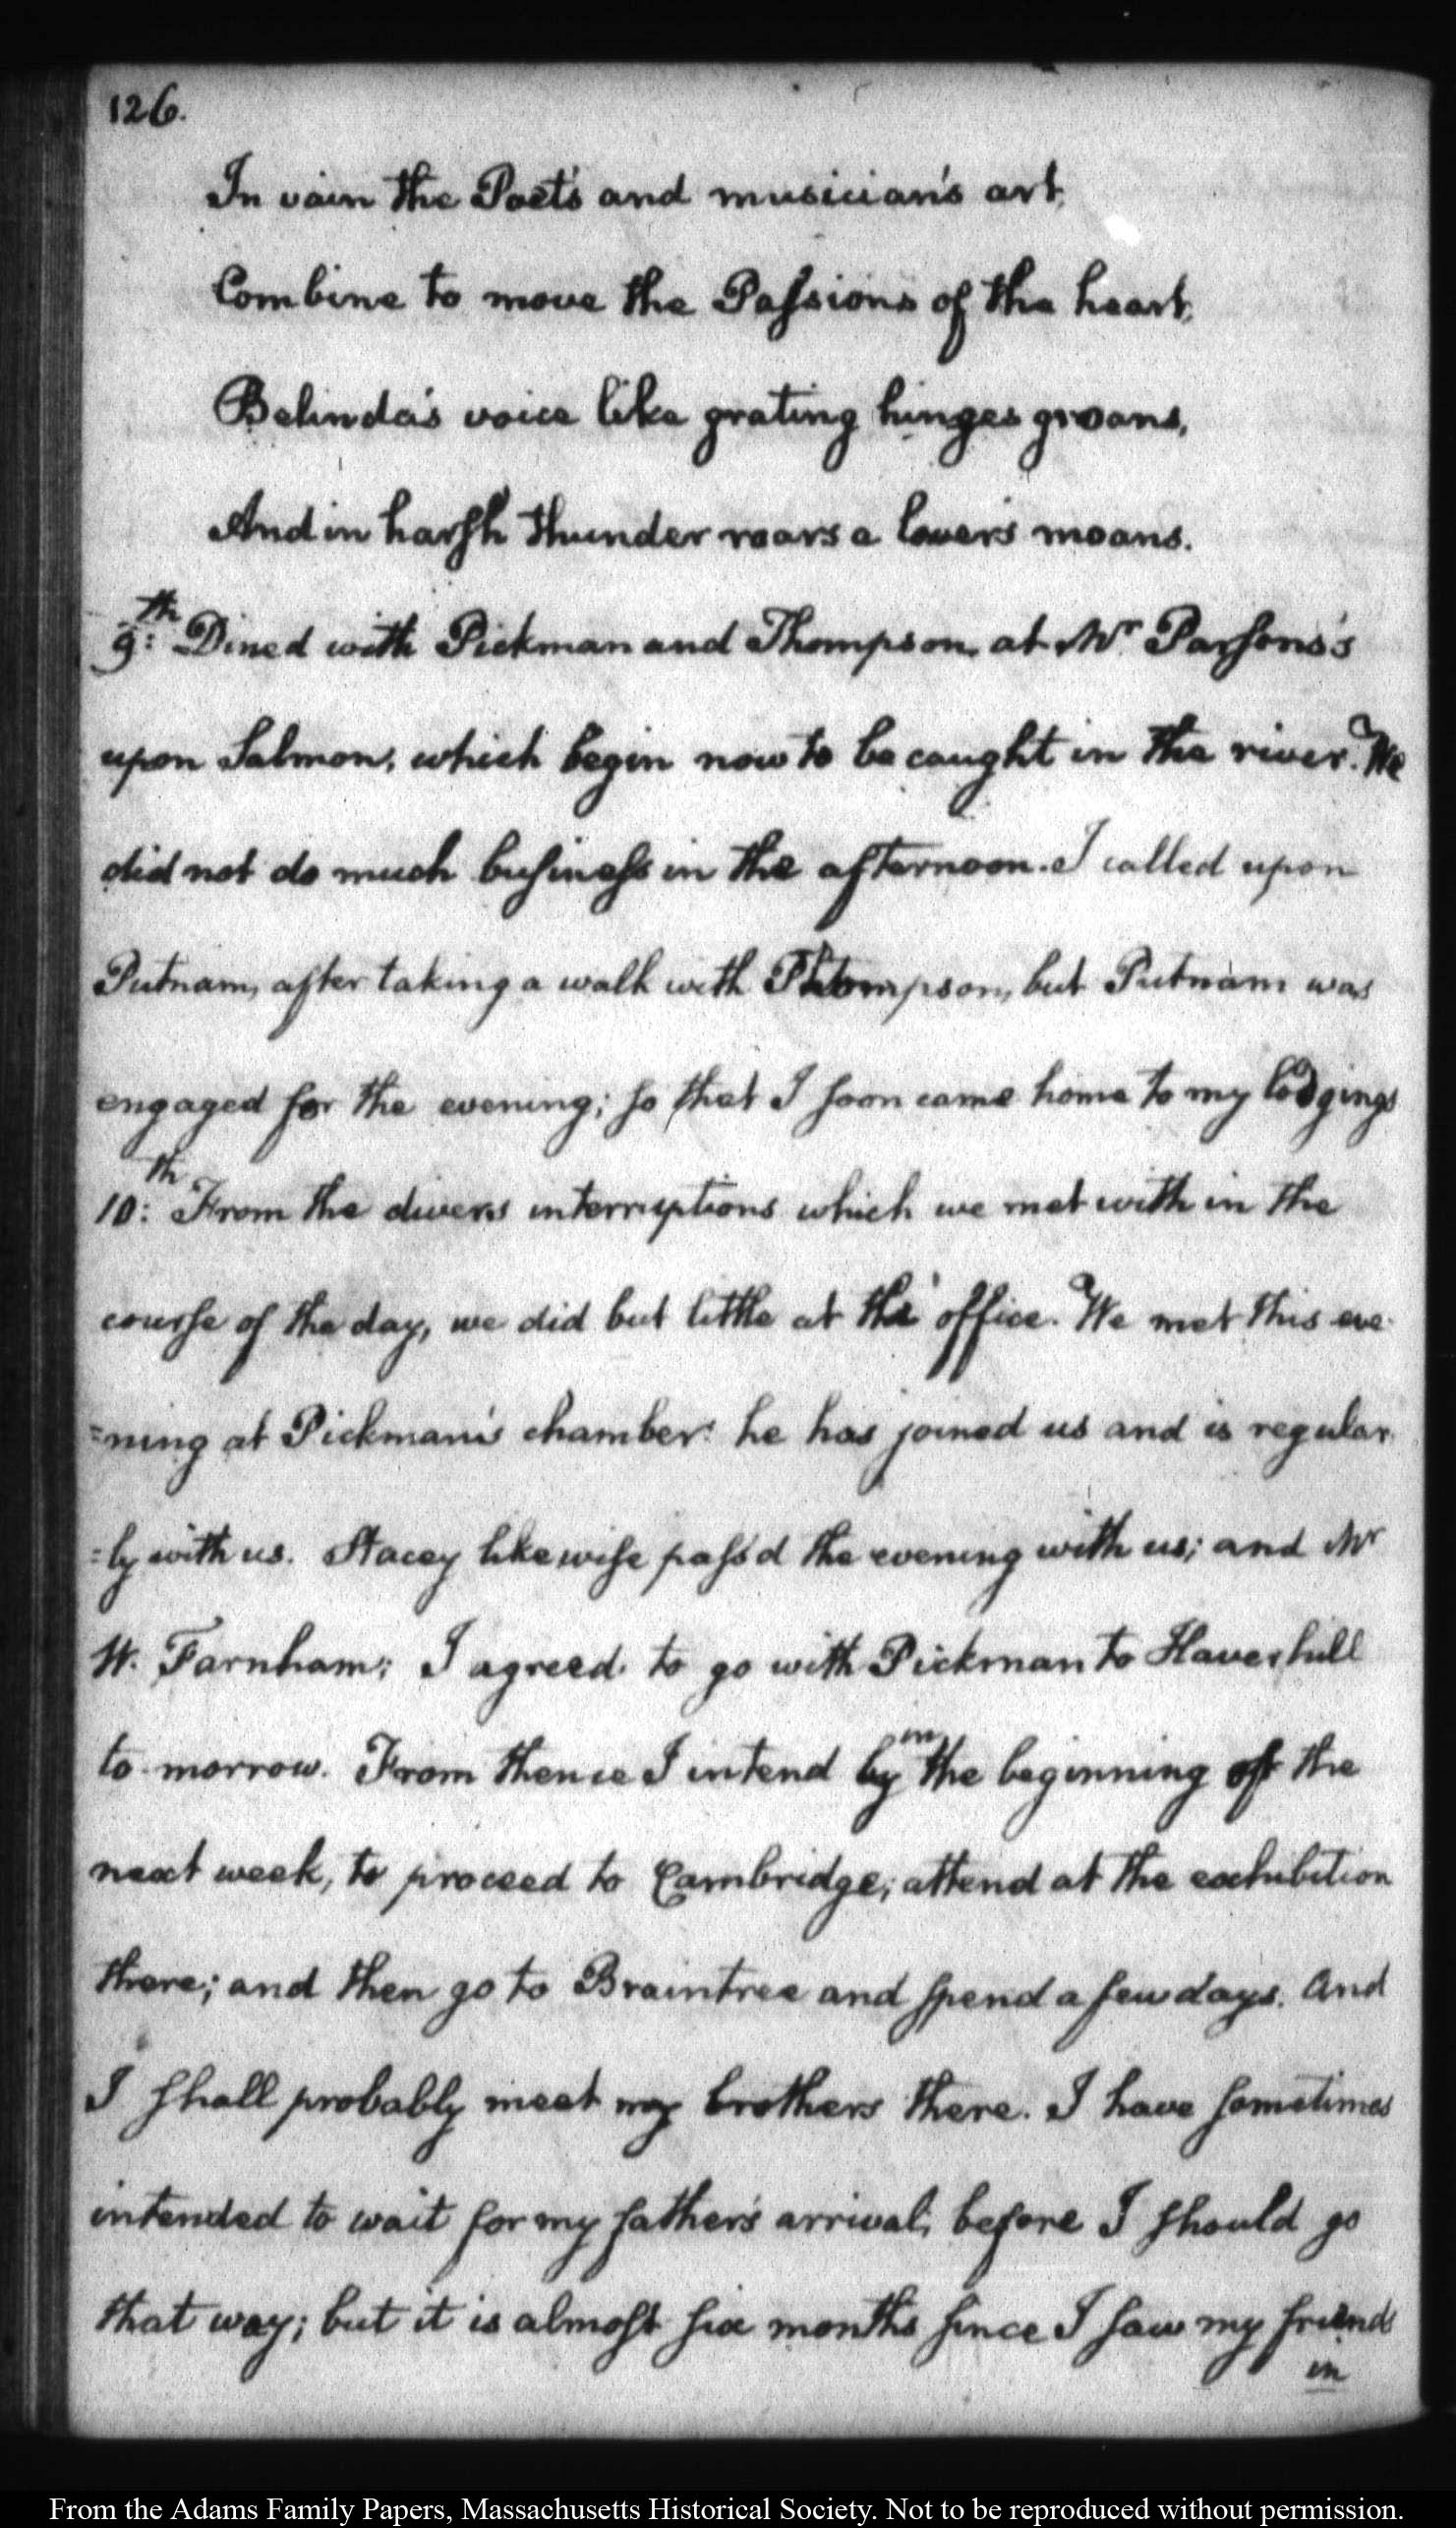 126.
In vain the Poet's and musician's art,
Combine to move the Paſsions of the heart,
Belinda's voice like grating hinges groans,
And in harſh thunder roars a lover's moans.
9:th Dined with Pickman and Thompson, at Mr. Parſons's
upon Salmon, which begin now to be caught in the river. We
did not do much buſineſs in the afternoon. I called upon
Putnam, after taking a walk with Thompson, but Putnam was
engaged for the evening; ſo that I ſoon came home to my lodgings
10:th From the divers interruptions which we met with in the
courſe of the day, we did but little at the office. We met this eve-
=ning at Pickman's chamber: he has joined us and is regular
=ly with us. Stacey likewiſe paſs'd the evening with us; and Mr
W. Farnham; I agreed to go with Pickman to Haverhill
to-morrow. From thence I intend by in the beginning of the
next week, to proceed to Cambridge; attend at the exhibition
there; and then go to Braintree and ſpend a few days. And
I ſhall probably meet my brothers there. I have ſometimes
intended to wait for my father's arrival, before I ſhould go
that way; but it is almoſt ſix months ſince I ſaw my friends
in
From the Adams Family Papers, Massachusetts Historical Society. Not to be reproduced without permission.